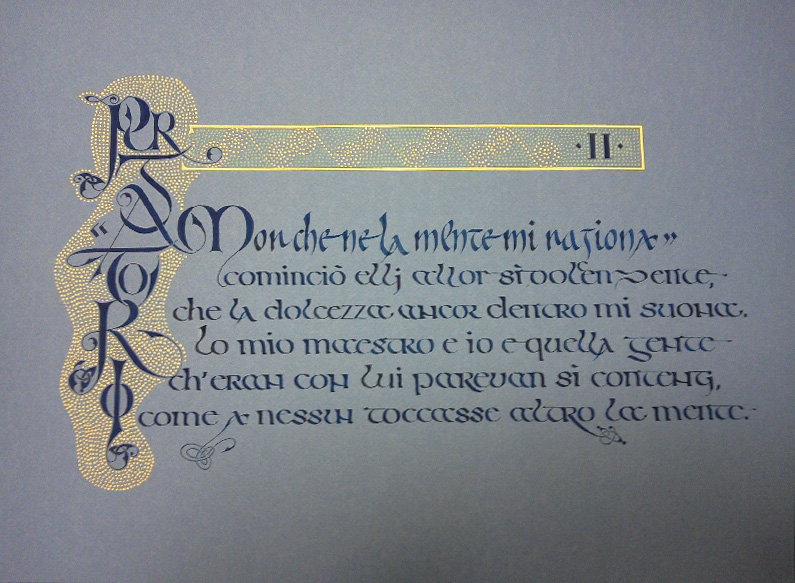 PURGATORIO
·II·
“Amor che ne la mente mi ragiona”
cominciò elli allor sì dolcemente,
che la dolcezza ancor dentro mi suona.
Lo mio maestro e io e quella gente
ch'eran con lui parevan sì contenti,
come a nessun toccasse altro la mente.